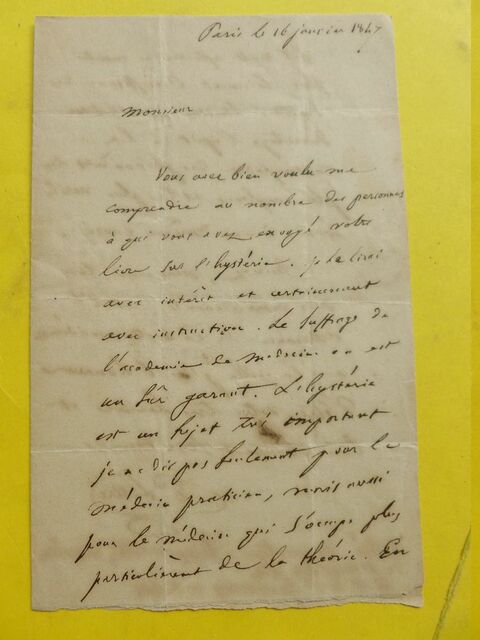 Paris le 16 janvier 1847
Monsieur
Vous avez bien voulu me
comprendre au nombre des personnes
à qui vous avez envoyé votre
livre sur l'hystérie. je le lirai
avec intérêt et certainement
avec instruction. Le suffrage de
l'académie de médecine en est
un sûr garant. L'hystérie
est un sujet très important
je ne dis pas seulement pour le
médecin praticien, mais aussi
pour le médecin qui s'occupe plus
particulièrement de la théorie. En